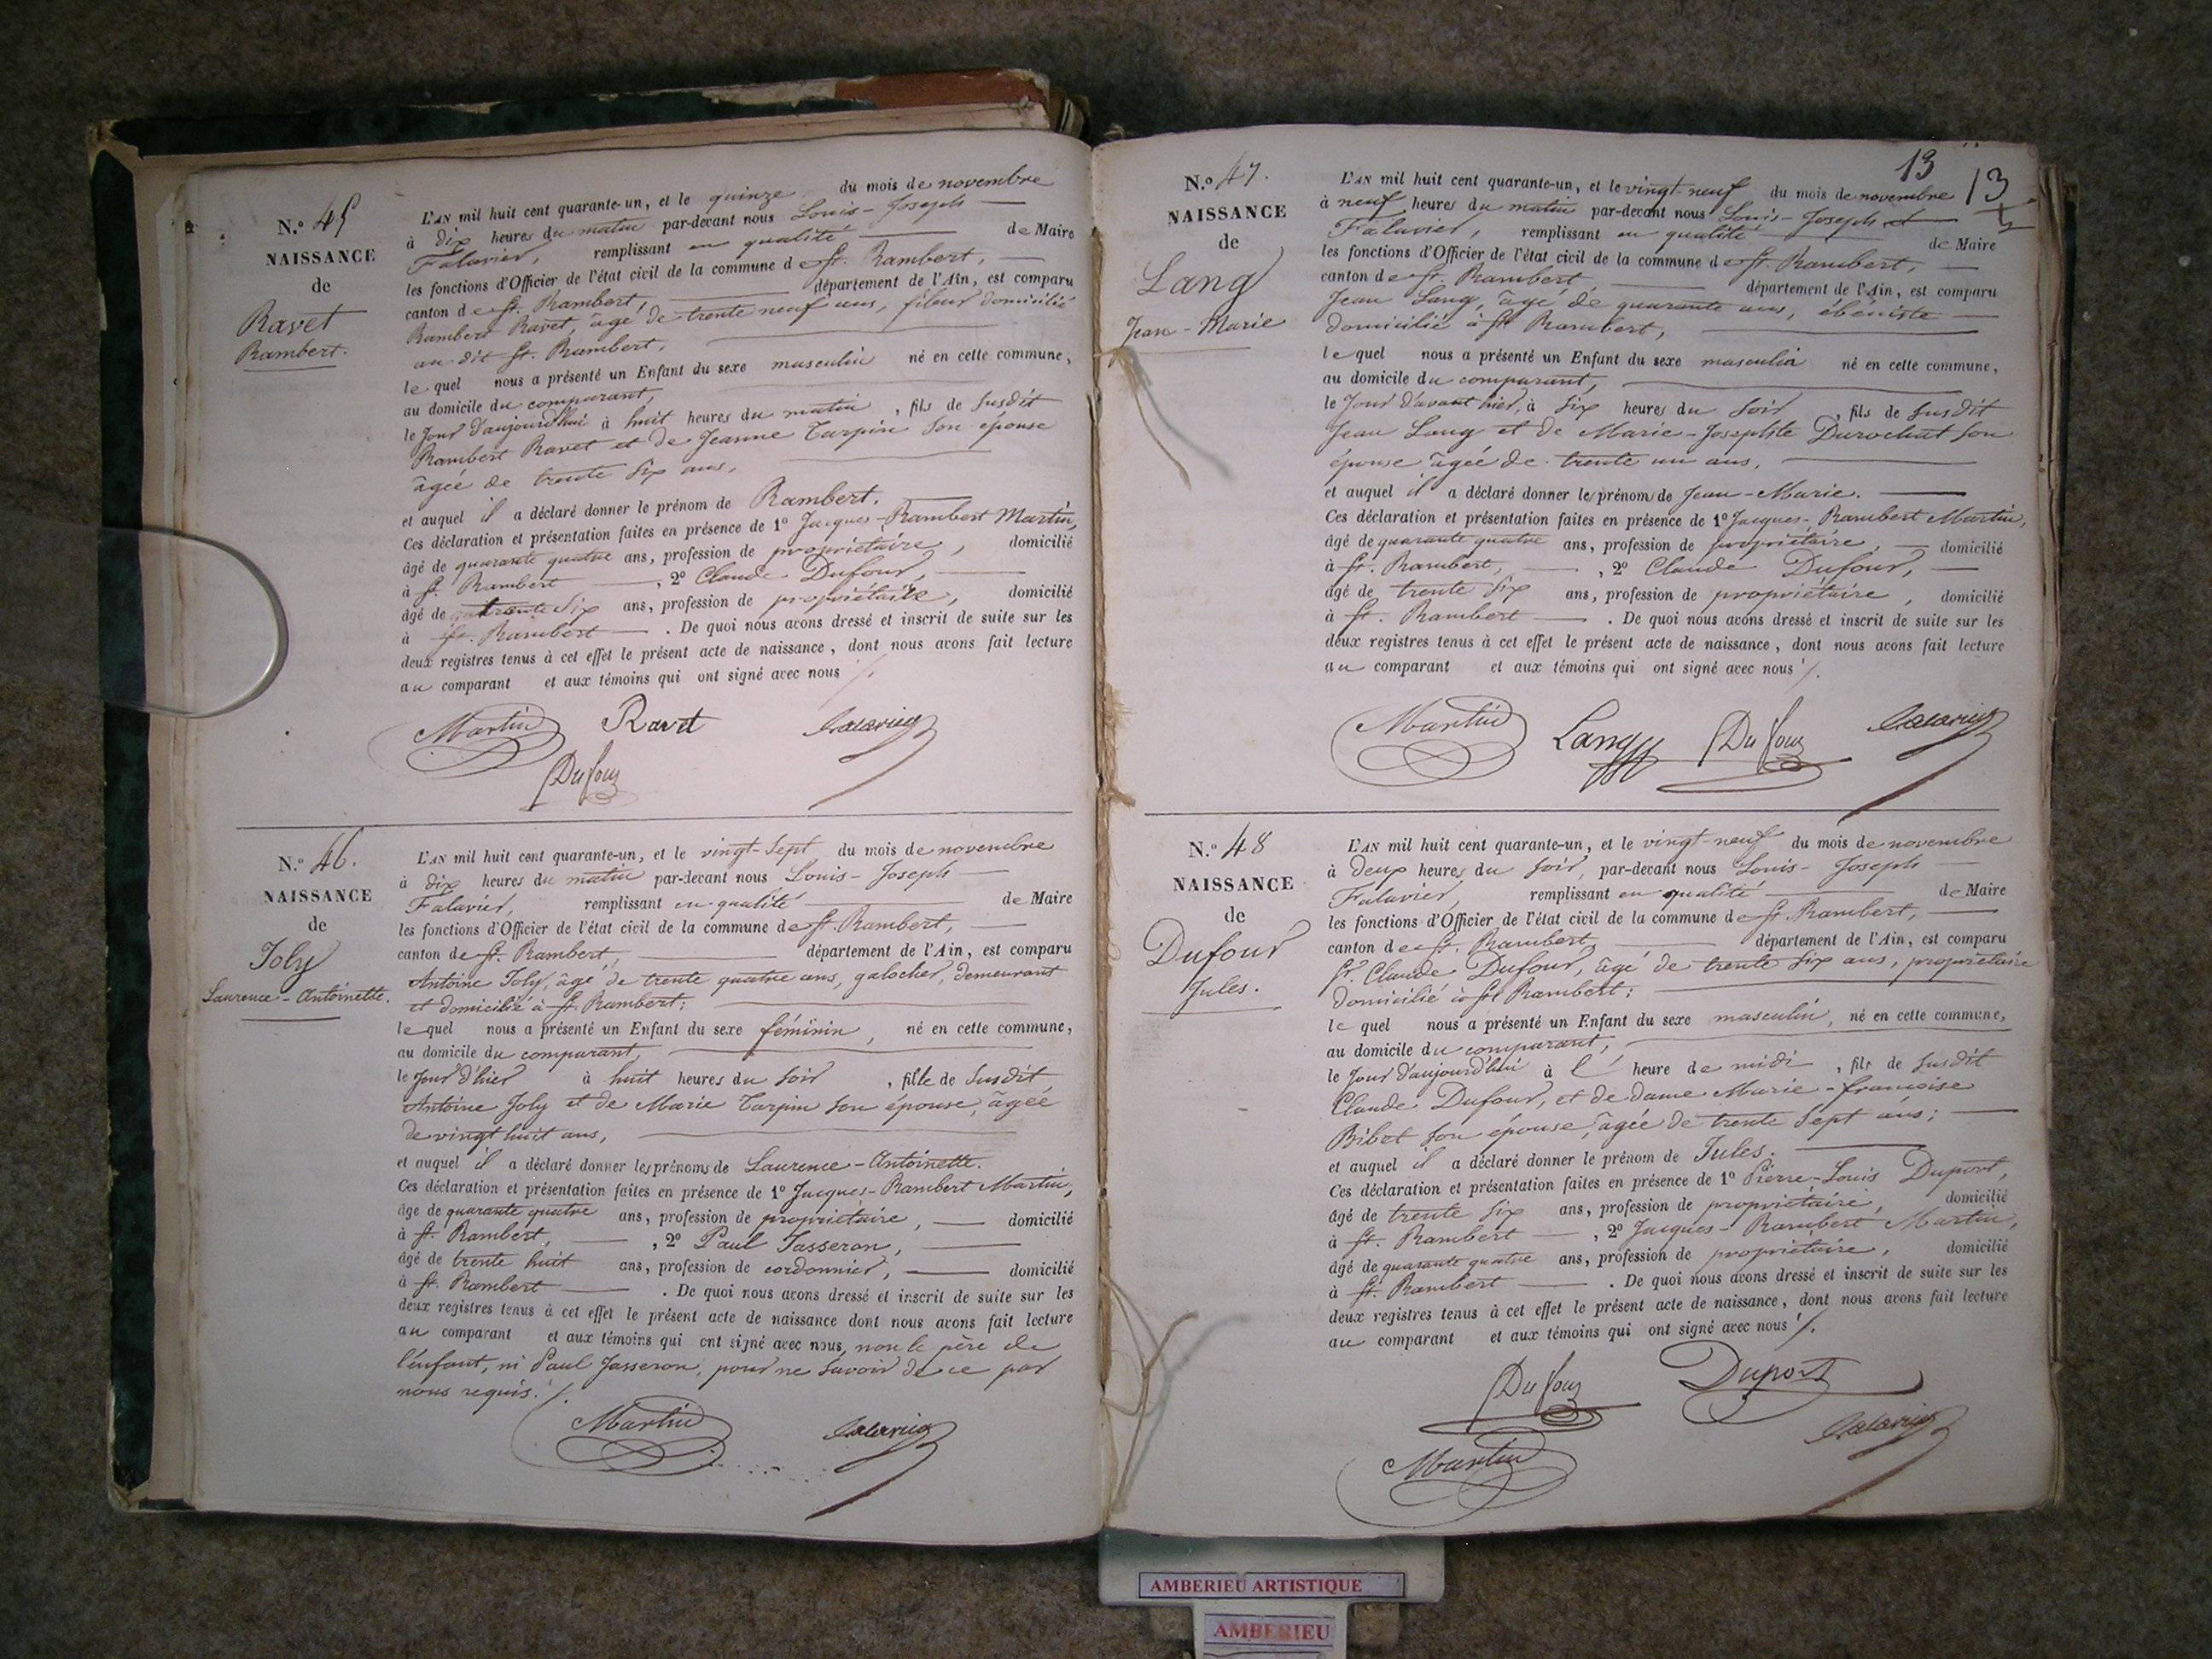 N.° 45
NAISSANCE
de
Ravet
Rambert.
L'AN mil huit cent quarante-un, et le quinze du mois de novembre
à dix heures du matin par-devant nous Louis-Joseph
Falavier, remplissant en qualité de Maire
les fonctions d'Officier de l'état civil de la commune de St. Rambert,
canton de St. Rambert, département de l'Ain, est comparu
Rambert Ravet, âgé de trente neuf ans, fileur domicilié
au dit St. Rambert,
lequel nous a présenté un Enfant du sexe masculin né en cette commune,
au domicile du comparant,
le jour d'aujourd'hui à huit heures du matin, fils de susdit
Rambert Ravet et de Jeanne Tarpin son épouse
âgée de trente six ans,
et auquel il a déclaré donner le prénom de Rambert.
Ces déclaration et présentation faites en présence de 1° Jacques-Rambert Martin,
âgé de quarante quatre ans, profession de propriétaire, domicilié
à St. Rambert, 2° Claude Dufour,
âgé de trente six ans, profession de propriétaire, domicilié
à St. Rambert. De quoi nous avons dressé et inscrit de suite sur les
deux registres tenus à cet effet le présent acte de naissance, dont nous avons fait lecture
au comparant et aux témoins qui ont signé avec nous ./.
Martin Ravet Falavier
Dufour
N.° 46.
NAISSANCE
de
Joly
Laurence-Antoinette.
L'AN mil huit cent quarante-un, et le vingt-sept du mois de novembre
à dix heures du matin par-devant nous Louis-Joseph
Falavier, remplissant en qualité de Maire
les fonctions d'Officier de l'état civil de la commune de St. Rambert,
canton de St. Rambert, département de l'Ain, est comparu
Antoine Joly, âgé de trente quatre ans, galocher, demeurant
et domicilié à St. Rambert;
lequel nous a présenté un Enfant du sexe féminin, né en cette commune,
au domicile du comparant,
le jour d'hier à huit heures du soir, fille de susdit
Antoine Joly et de Marie Tarpin son épouse, âgée
de vingt huit ans,
et auquel il a déclaré donner les prénoms de Laurence-Antoinette.
Ces déclaration et présentation faites en présence de 1° Jacques-Rambert Martin,
âgé de quarante quatre ans, profession de propriétaire, domicilié
à St. Rambert, 2° Paul Jasseron,
âgé de trente huit ans, profession de cordonnier, domicilié
à St. Rambert. De quoi nous avons dressé et inscrit de suite sur les
deux registres tenus à cet effet le présent acte de naissance dont nous avons fait lecture
au comparant et aux témoins qui ont signé avec nous, non le père de
l'enfant, ni Paul Jasseron, pour ne savoir de ce par
nous requis. ./.
Martin Falavier
13
13
N.° 47.
NAISSANCE
de
Lang
Jean-Marie
L'AN mil huit cent quarante-un, et le vingt-neuf du mois de novembre
à neuf heures du matin par-devant nous Louis-Joseph
Falavier, remplissant en qualité de Maire
les fonctions d'Officier de l'état civil de la commune de St. Rambert,
canton de St. Rambert, département de l'Ain, est comparu
Jean Lang, âgé de quarante ans, ébéniste
domicilié à St. Rambert,
lequel nous a présenté un Enfant du sexe masculin né en cette commune,
au domicile du comparant,
le jour d'avant hier, à six heures du soir, fils de susdit
Jean Lang et de Marie-Josephte Durochat son
épouse âgée de trente un ans,
et auquel il a déclaré donner les prénoms de Jean-Marie.
Ces déclaration et présentation faites en présence de 1° Jacques-Rambert Martin,
âgé de quarante quatre ans, profession de propriétaire, domicilié
à St. Rambert, 2° Claude Dufour,
âgé de trente six ans, profession de propriétaire, domicilié
à St. Rambert. De quoi nous avons dressé et inscrit de suite sur les
deux registres tenus à cet effet le présent acte de naissance, dont nous avons fait lecture
au comparant et aux témoins qui ont signé avec nous ./.
Martin Lang Dufour Falavier
N.° 48
NAISSANCE
de
Dufour
Jules.
L'AN mil huit cent quarante-un, et le vingt-neuf du mois de novembre
à deux heures du soir, par-devant nous Louis-Joseph
Falavier, remplissant en qualité de Maire
les fonctions d'Officier de l'état civil de la commune de St. Rambert,
canton de St. Rambert, département de l'Ain, est comparu
Sr. Claude Dufour, âgé de trente six ans, propriétaire
domicilié à St Rambert;
lequel nous a présenté un Enfant du sexe masculin, né en cette commune,
au domicile du comparant,
le jour d'aujourd'hui à l' heure de midi, fils de susdit
Claude Dufour, et de dame Marie-françoise
Bibet son épouse, âgée de trente sept ans;
et auquel il a déclaré donner le prénom de Jules.
Ces déclaration et présentation faites en présence de 1° Pierre-Louis Duport,
âgé de trente six ans, profession de propriétaire, domicilié
à St. Rambert, 2° Jacques-Rambert Martin,
âgé de quarante quatre ans, profession de propriétaire, domicilié
à St. Rambert. De quoi nous avons dressé et inscrit de suite sur les
deux registres tenus à cet effet le présent acte de naissance, dont nous avons fait lecture
au comparant et aux témoins qui ont signé avec nous ./.
Dufour Duport
Martin Falavier
AMBERIEU ARTISTIQUE
AMBERIEU